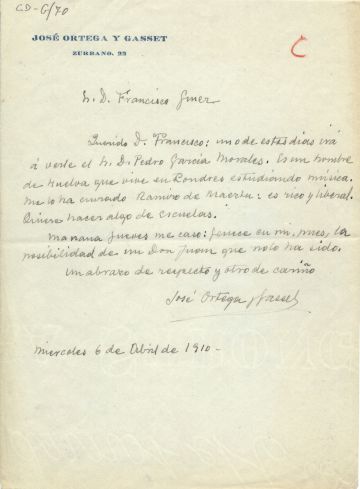 CD-G/70
JOSÉ ORTEGA Y GASSET
ZURBANO, 22
C
S. D. Francisco Giner
Querido D. Francisco: uno de estos dias irá
á verle el S. D. Pedro García Morales. Es un hombre
de Huelva que vive en Londres estudiando música.
Me lo ha enviado Ramiro de Maeztu: es rico y liberal.
Quiere hacer algo de escuelas.
Mañana jueves me caso: fenece en mi, pues, la
posibilidad de un Don Juan que no lo ha sido.
Un abrazo de respeto y otro de cariño
José Ortega y Gasset
Miercoles 6 de Abril de 1910-